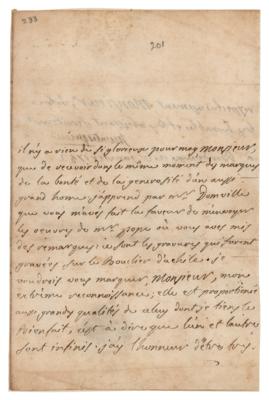 233
201
il n'y a rien de si glorieux pour moy Monsieur,
que de recevoir dans le même moment des marques
de la bonté et de la generosité d'un aussi
grand home; j'apprend par mr. Domville
que vous m'avés fait la faveur de m'envoyer
les oeuvres de mr. pope où vous avés mis
des remarques; ce sont les gravures qui furent
gravées sur le bouclier d'achile. je
voudrois vous marquer, Monsieur, mon
extrême reconnoissance; elle est proportionée
aux grandes qualités de celuy dont je tiens le
bienfait, c'est à dire que l'un et l'autre
sont infinis. j'ay l'honneur d'être tres